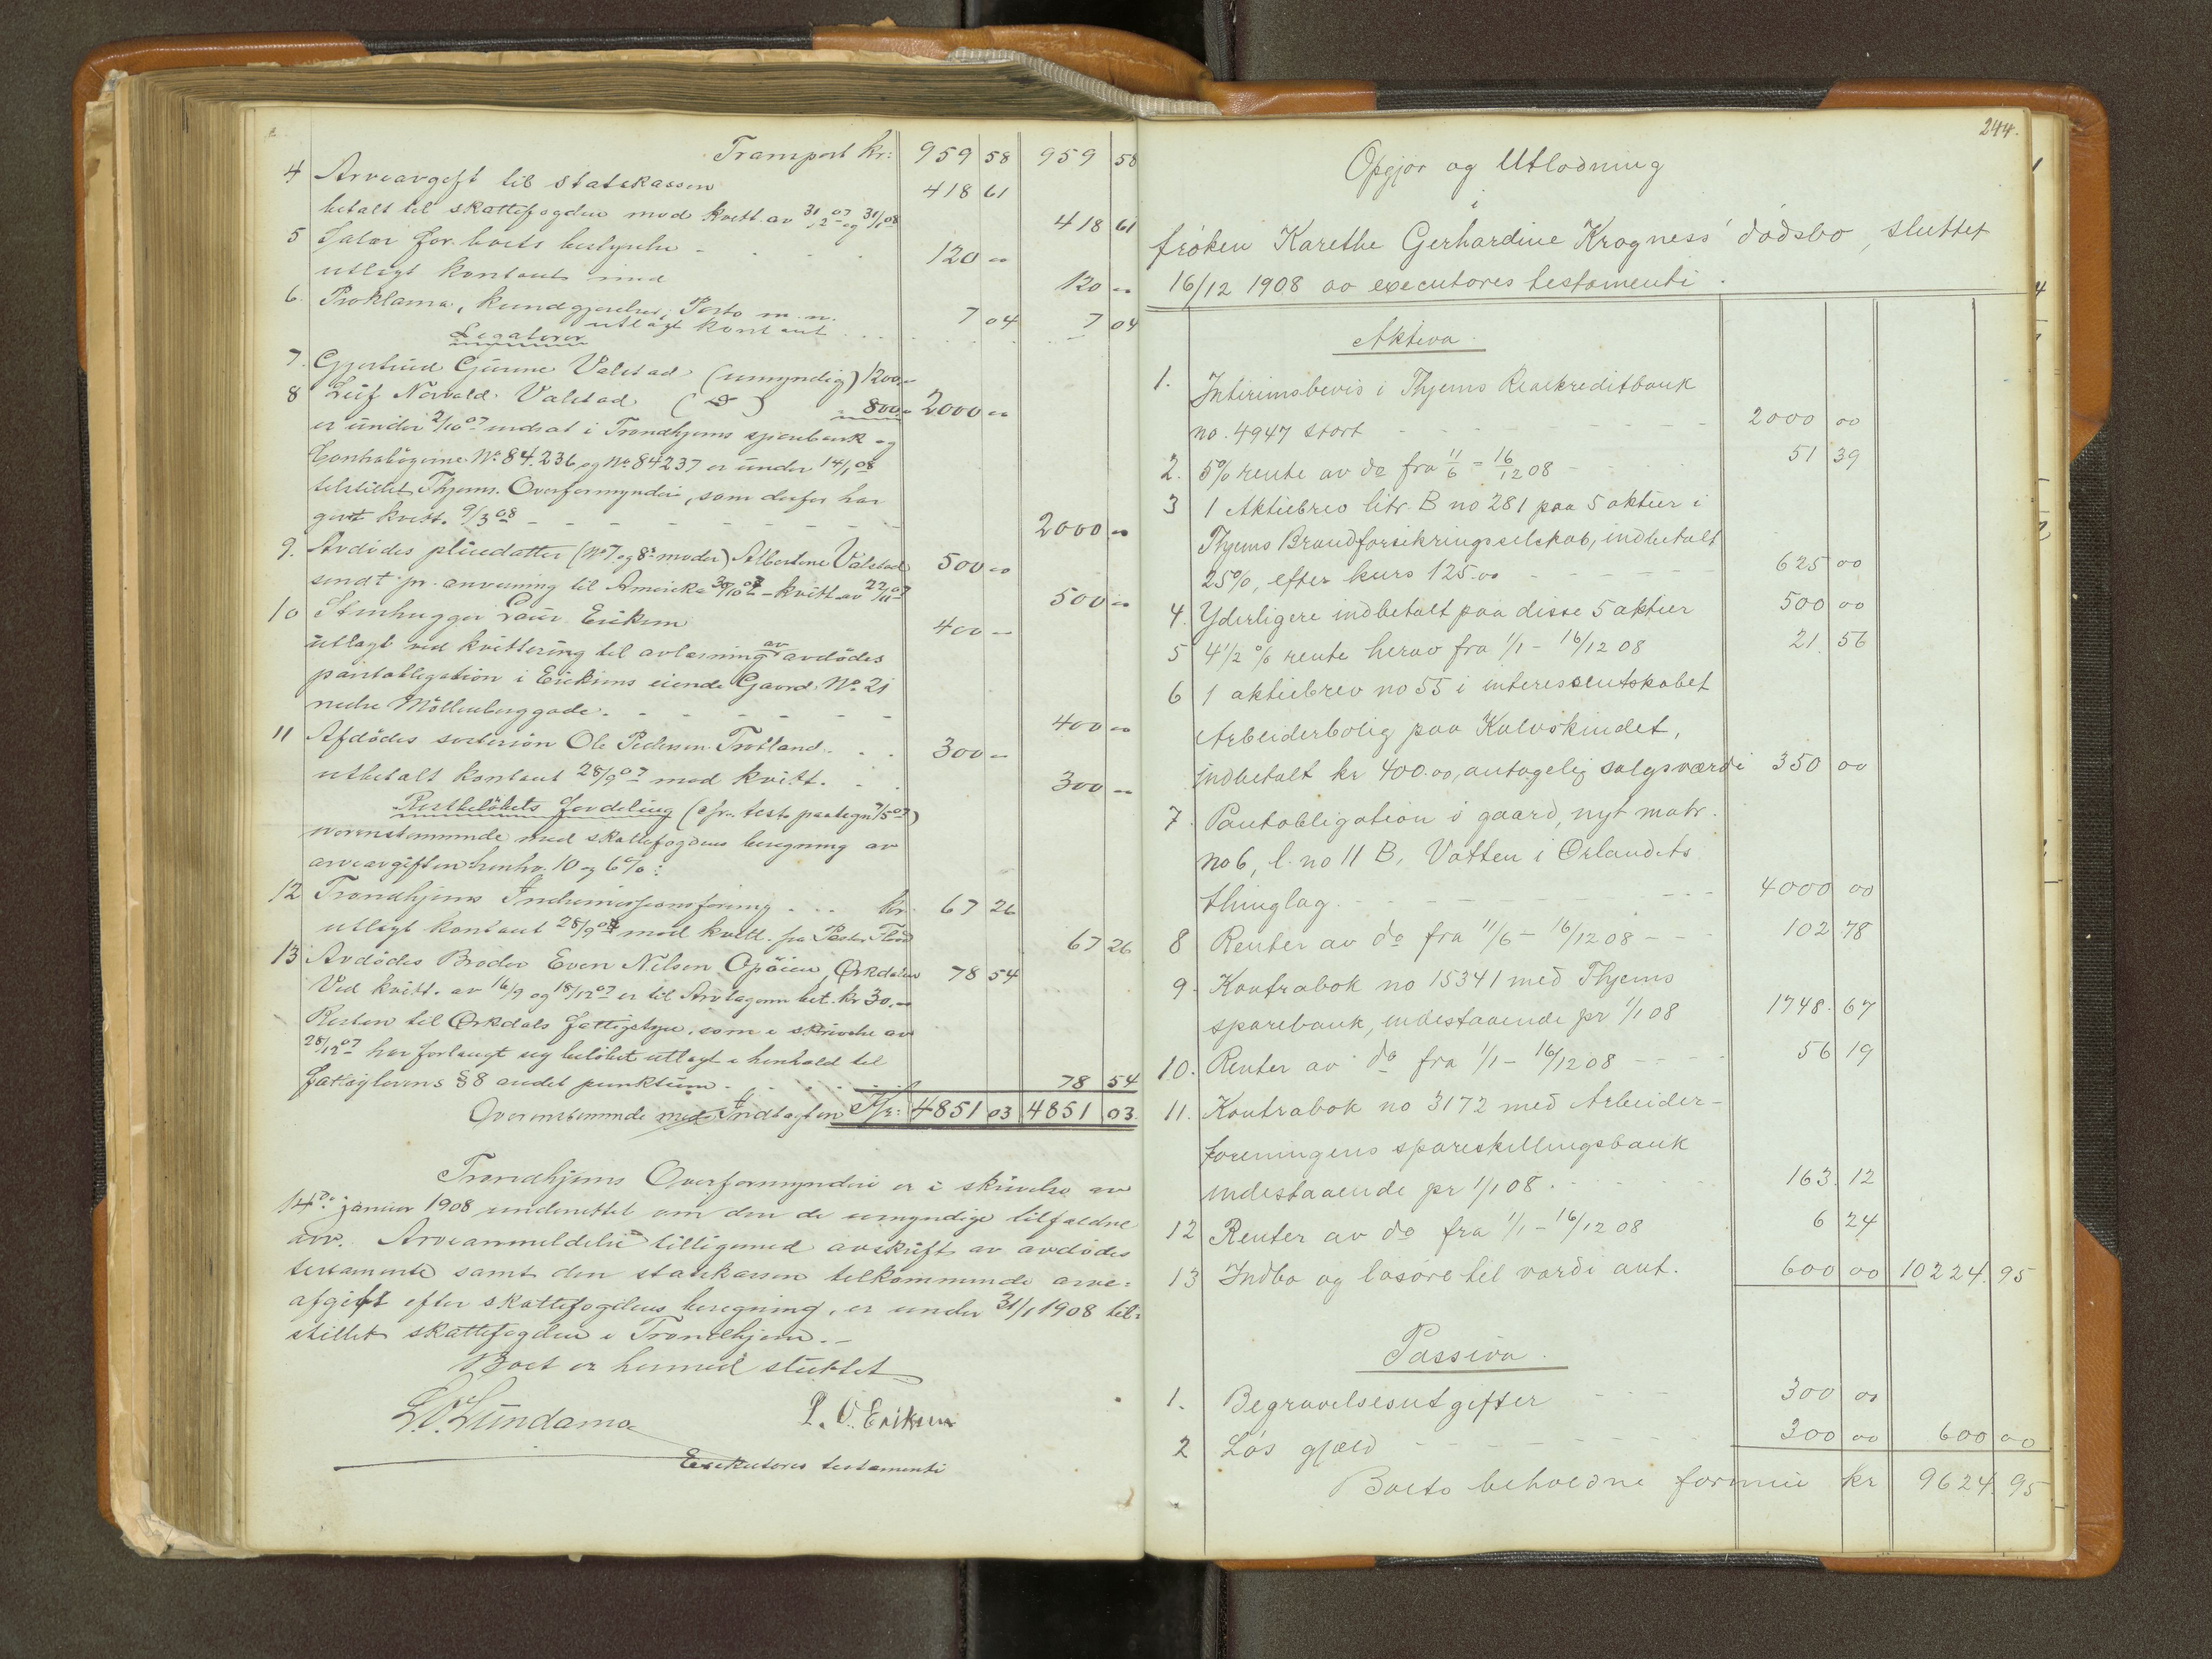 Transport kr: 959 58 959 58
4 Arveavgift til Statskassen 418 61
betalt til skattefogden med kvitt. av 31/12 07 og 31/1 08 418 61
5 Salær for boets bestyrelse - 120 "
utlagt kontant med 120 "
6. Proklama, kundgjørelser, Porto m. m. 7 04
utlagt kontant 7 04
Legatarer
7. Gjertrud Gunne Valstad (umyndig) 1200,"
8 Leif Norvald Valstad (do) 800" 2000 "
er under 2/10 07 indsat i Trondhjems sparebank og
Contrabøgerne No 84.236 og No 84237 er under 14/1 08
tilstillet Thjems. Overformynderi, som derfor har
givet kvitt. 9/3 08 - - - 2000 "
9. Avdødes pleiedatter (No 7 og 8s moder) Albertine Valstad 500 "
sendt pr. anvisning til Amerika 30/10 07 - kvitt av 22/11 07 500 "
10 Stenhugger Laur. Eriksen 400 "
utlagt ved kvittering til avløsning av avdødes
pantobligation i Eriksens eiende Gaard No. 21
nedre Möllenberggade. - - - 400 "
11 Afdødes søstersøn Ole Pedersen Trøtland. 300 "
utbetalt kontant 28/9 07 med kvitt. 300 "
Restbeløbets fordeling (cfr. test. paategn 7/5 07)
overenstemmende med skattefogdens beregning av
arveavgiften henhv. 10 og 6%:
12 Trondhjems Indremissionsforening . . . kr. 67 26
utlagt kontant 28/9 07 med kvitt. fra Pastor Flood 67 26
13 Avdødes Broder Even Nilsen Opöien, Ørkdalen 78 54
Ved kvitt. av 16/9 og 18/12 07 er til Arvtageren bet. kr 30."
Resten til Ørkdals fattigstyre, som i skrivelse av
28/12 07 har forlangt sig beløbet utlagt i henhold til
fattiglovens § 8 andet punktum 78 54
Overensstemmende med Indtægten Kr: 4851 03 4851 03.
Trondhjems Overformynderi er i skrivelse av
14de januar 1908 underrettet om den de umyndige tilfaldne
arv. Arveanmeldelse tilligemed avskrift av avdødes
testamente samt den statskassen tilkommende arve=
afgift efter skattefogdens beregning, er under 31/1 1908 til=
stillet skattefogden i Trondhjem. -
Boet er hermed sluttet
L. O. Lundamo P. O. Eriksen
Executores testamenti
244.
Opgjør og Utlodning
i
frøken Karethe Gerhardine Krogness' dødsbo, sluttet
16/12 1908 av executores testamenti.
Aktiva.
1. Interimsbevis i Thjems Realkreditbank
no. 4947 stort - - - 2000 00
2. 5% rente av do fra 11/6 - 16/12 08 - 51 39
3 1 Aktiebrev litr. B no 281 paa 5 aktier i
Thjems Brandforsikringsselskab, indbetalt
25%, efter kurs 125.00 - - - 625 00
4. Yderligere indbetalt paa disse 5 aktier 500 00
5 4 1/2 % rente herav fra 1/1 - 16/12 08 21. 56
6 1 aktiebrev no 55 i interessentskabet
Arbeiderbolig paa Kalvskindet,
indbetalt kr 400.00, antagelig salgsværdi 350 00
7. Pantobligation i gaard, nyt matr.
no 6, l. no 11 B, Vatten i Ørlandets
thinglag. - - - 4000 00
8 Renter av do fra 11/6 - 16/12 08 - - 102. 78
9. Kontrabok no 15341 med Thjems
sparebank, indestaaende pr 1/1 08 1748. 67
10. Renter av do fra 1/1 - 16/12 08 - - - 56 19
11. Kontrabok no 3172 med Arbeider-
foreningens spareskillingsbank
indestaaende pr 1/1 08. - - - 163. 12
12 Renter av do fra 1/1 - 16/12 08 6 24
13 Indbo og løsøre til værdi ant. 600 00 10224. 95
Passiva.
1. Begravelsesutgifter - - - 300 00
2 Løs gjæld - - - 300 00 600 00
Boets beholdne formue kr 9624. 95